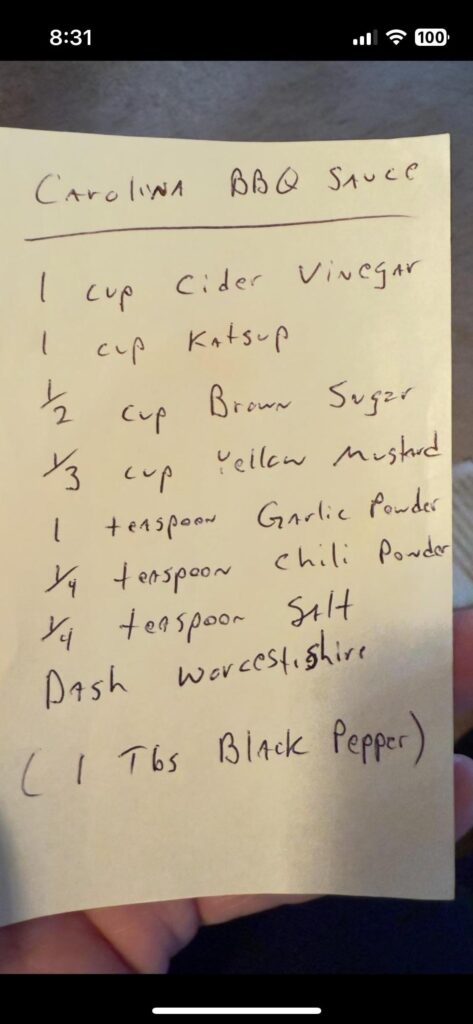 8:31
100
Carolina BBQ Sauce
1 cup Cider Vinegar
1 cup Katsup
1/2 cup Brown Sugar
1/3 cup Yellow Mustard
1 teaspoon Garlic Powder
1/4 teaspoon Chili Powder
1/4 teaspoon Salt
Dash Worcestishire
(1 Tbs Black Pepper)